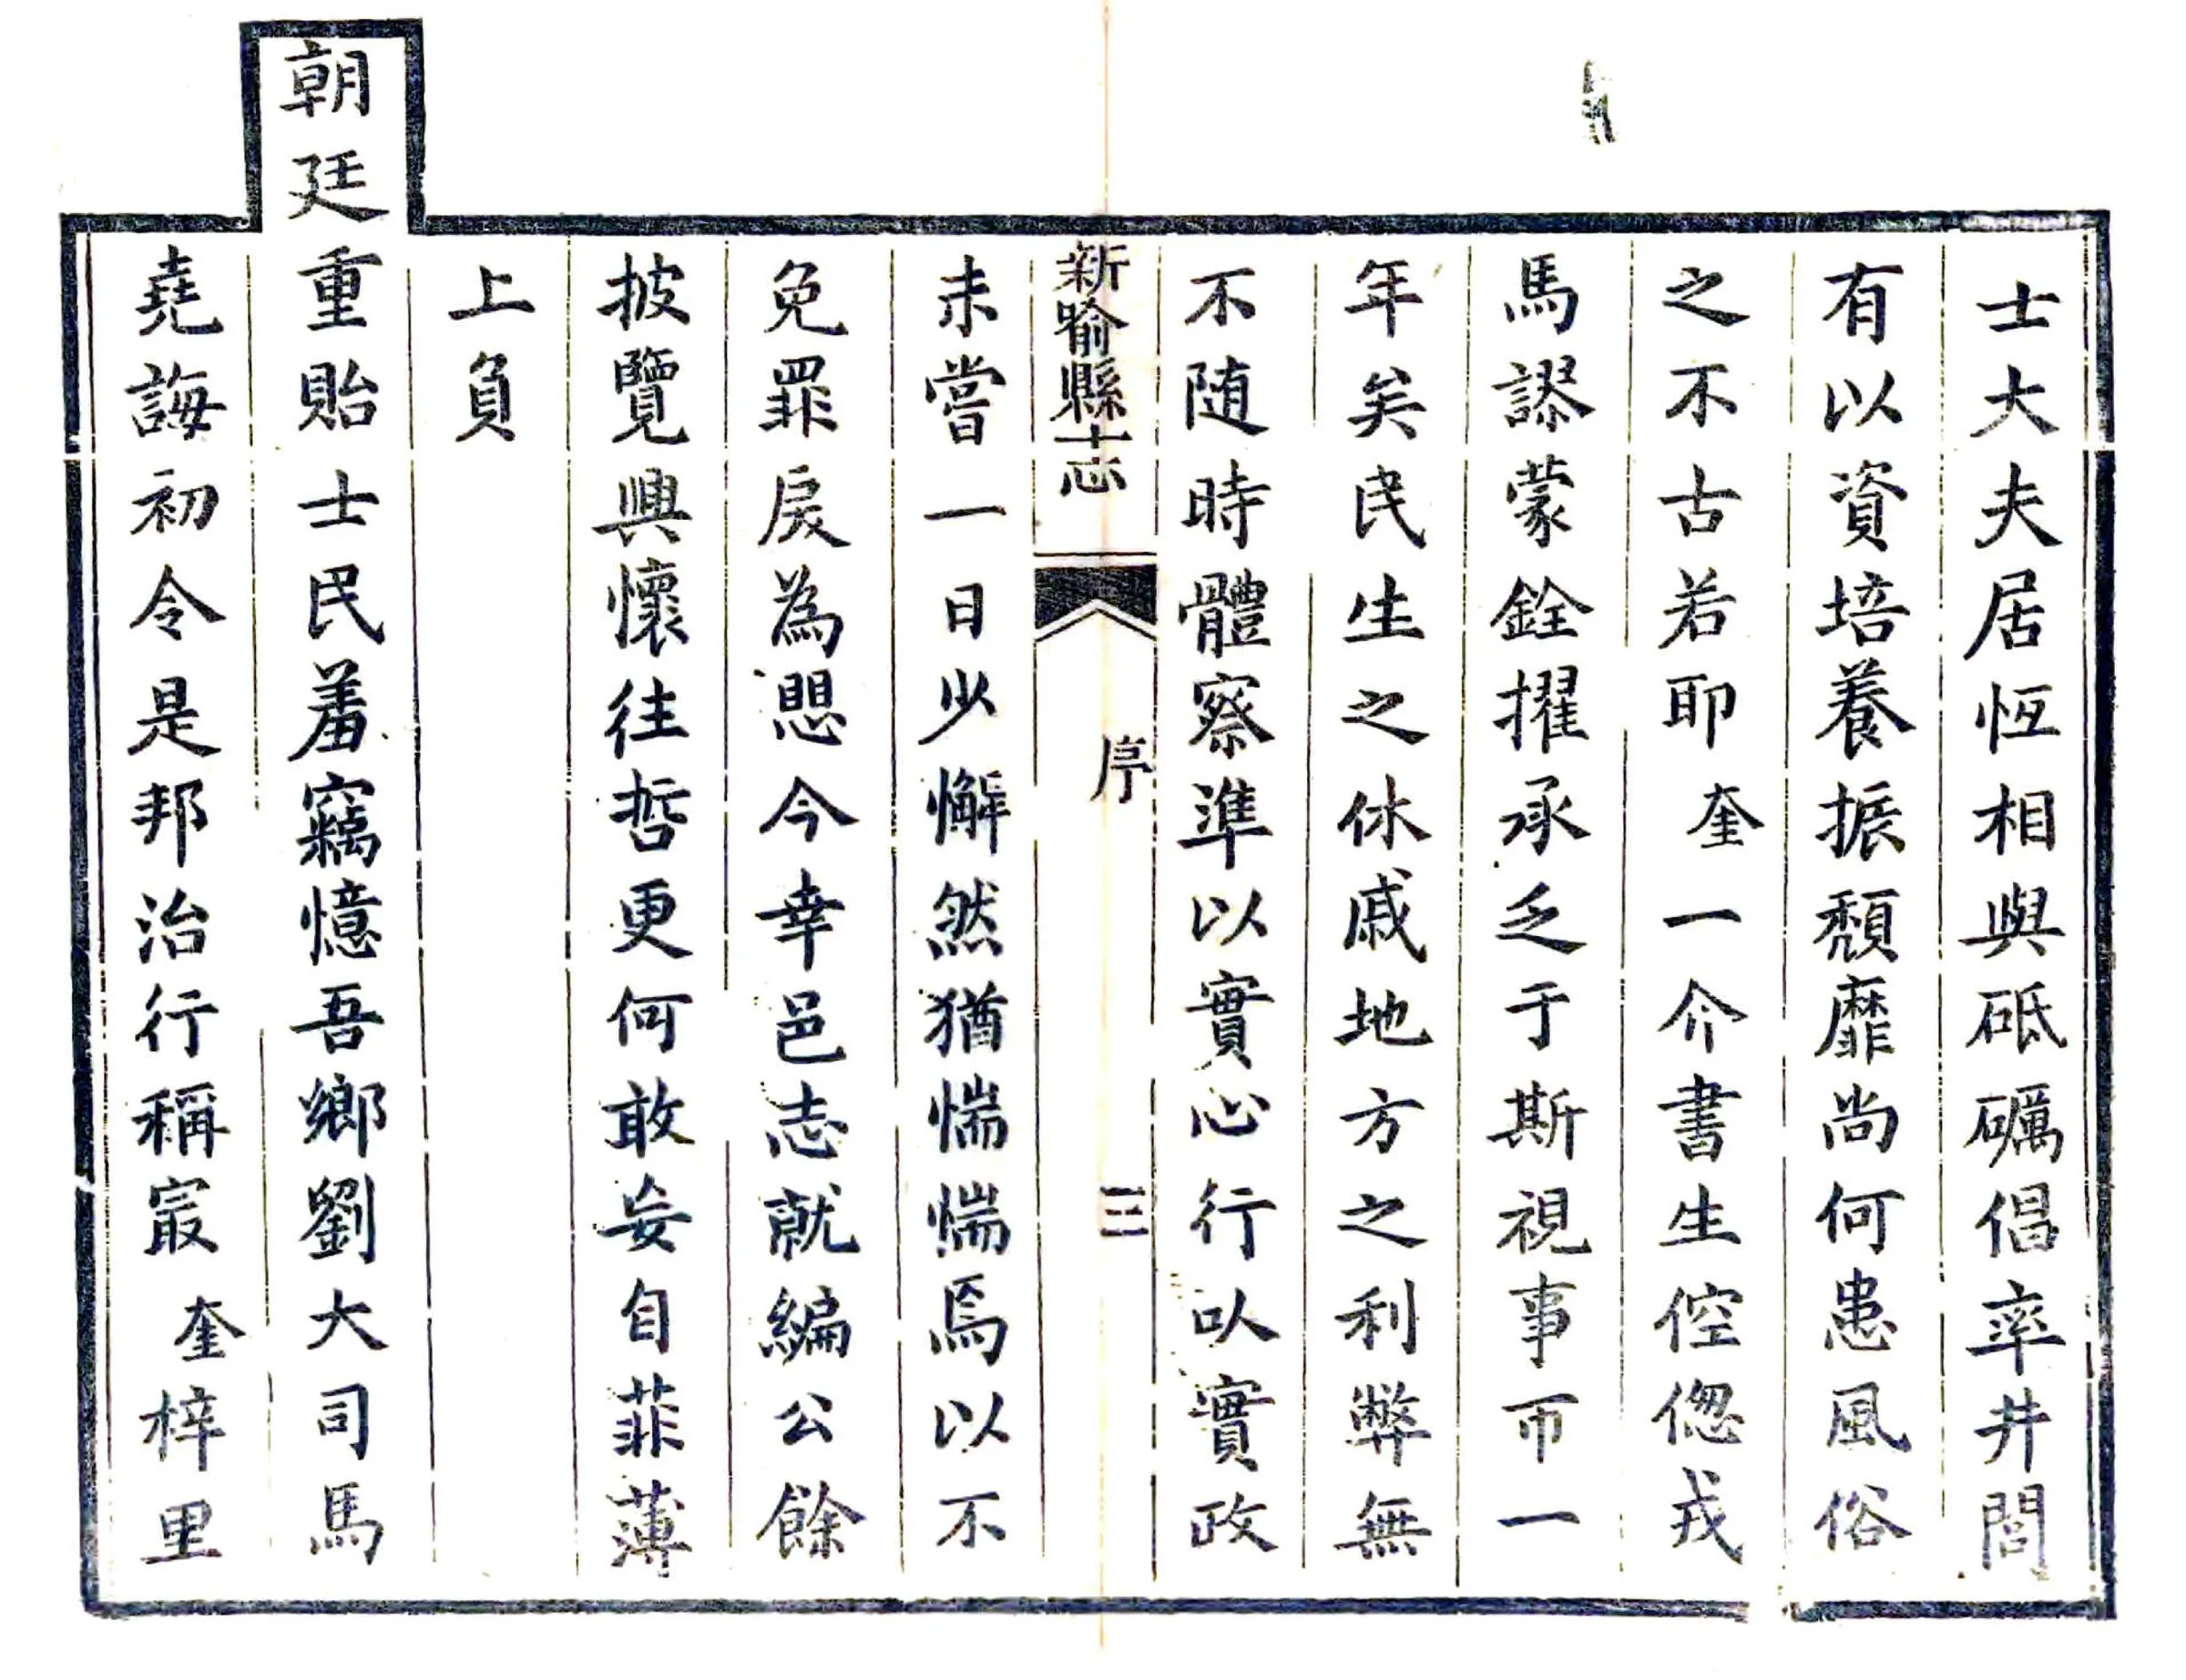 士大夫居恆相與砥礪倡率井閭
有以資培養振頹靡尚何患風俗
之不古若耶奎一介書生倥偬戎
馬謬蒙銓擢承乏于斯視事帀一
年矣民生之休戚地方之利弊無
不随時體察準以實心行以實政
新喻縣志
序
三
未嘗一日少懈然猶惴惴焉以不
免罪戾為愳今幸邑志就編公餘
披覽興懷往哲更何敢妄自菲薄
上負
朝廷重貽士民羞竊憶吾鄉劉大司馬
堯誨初令是邦治行稱㝡奎梓里